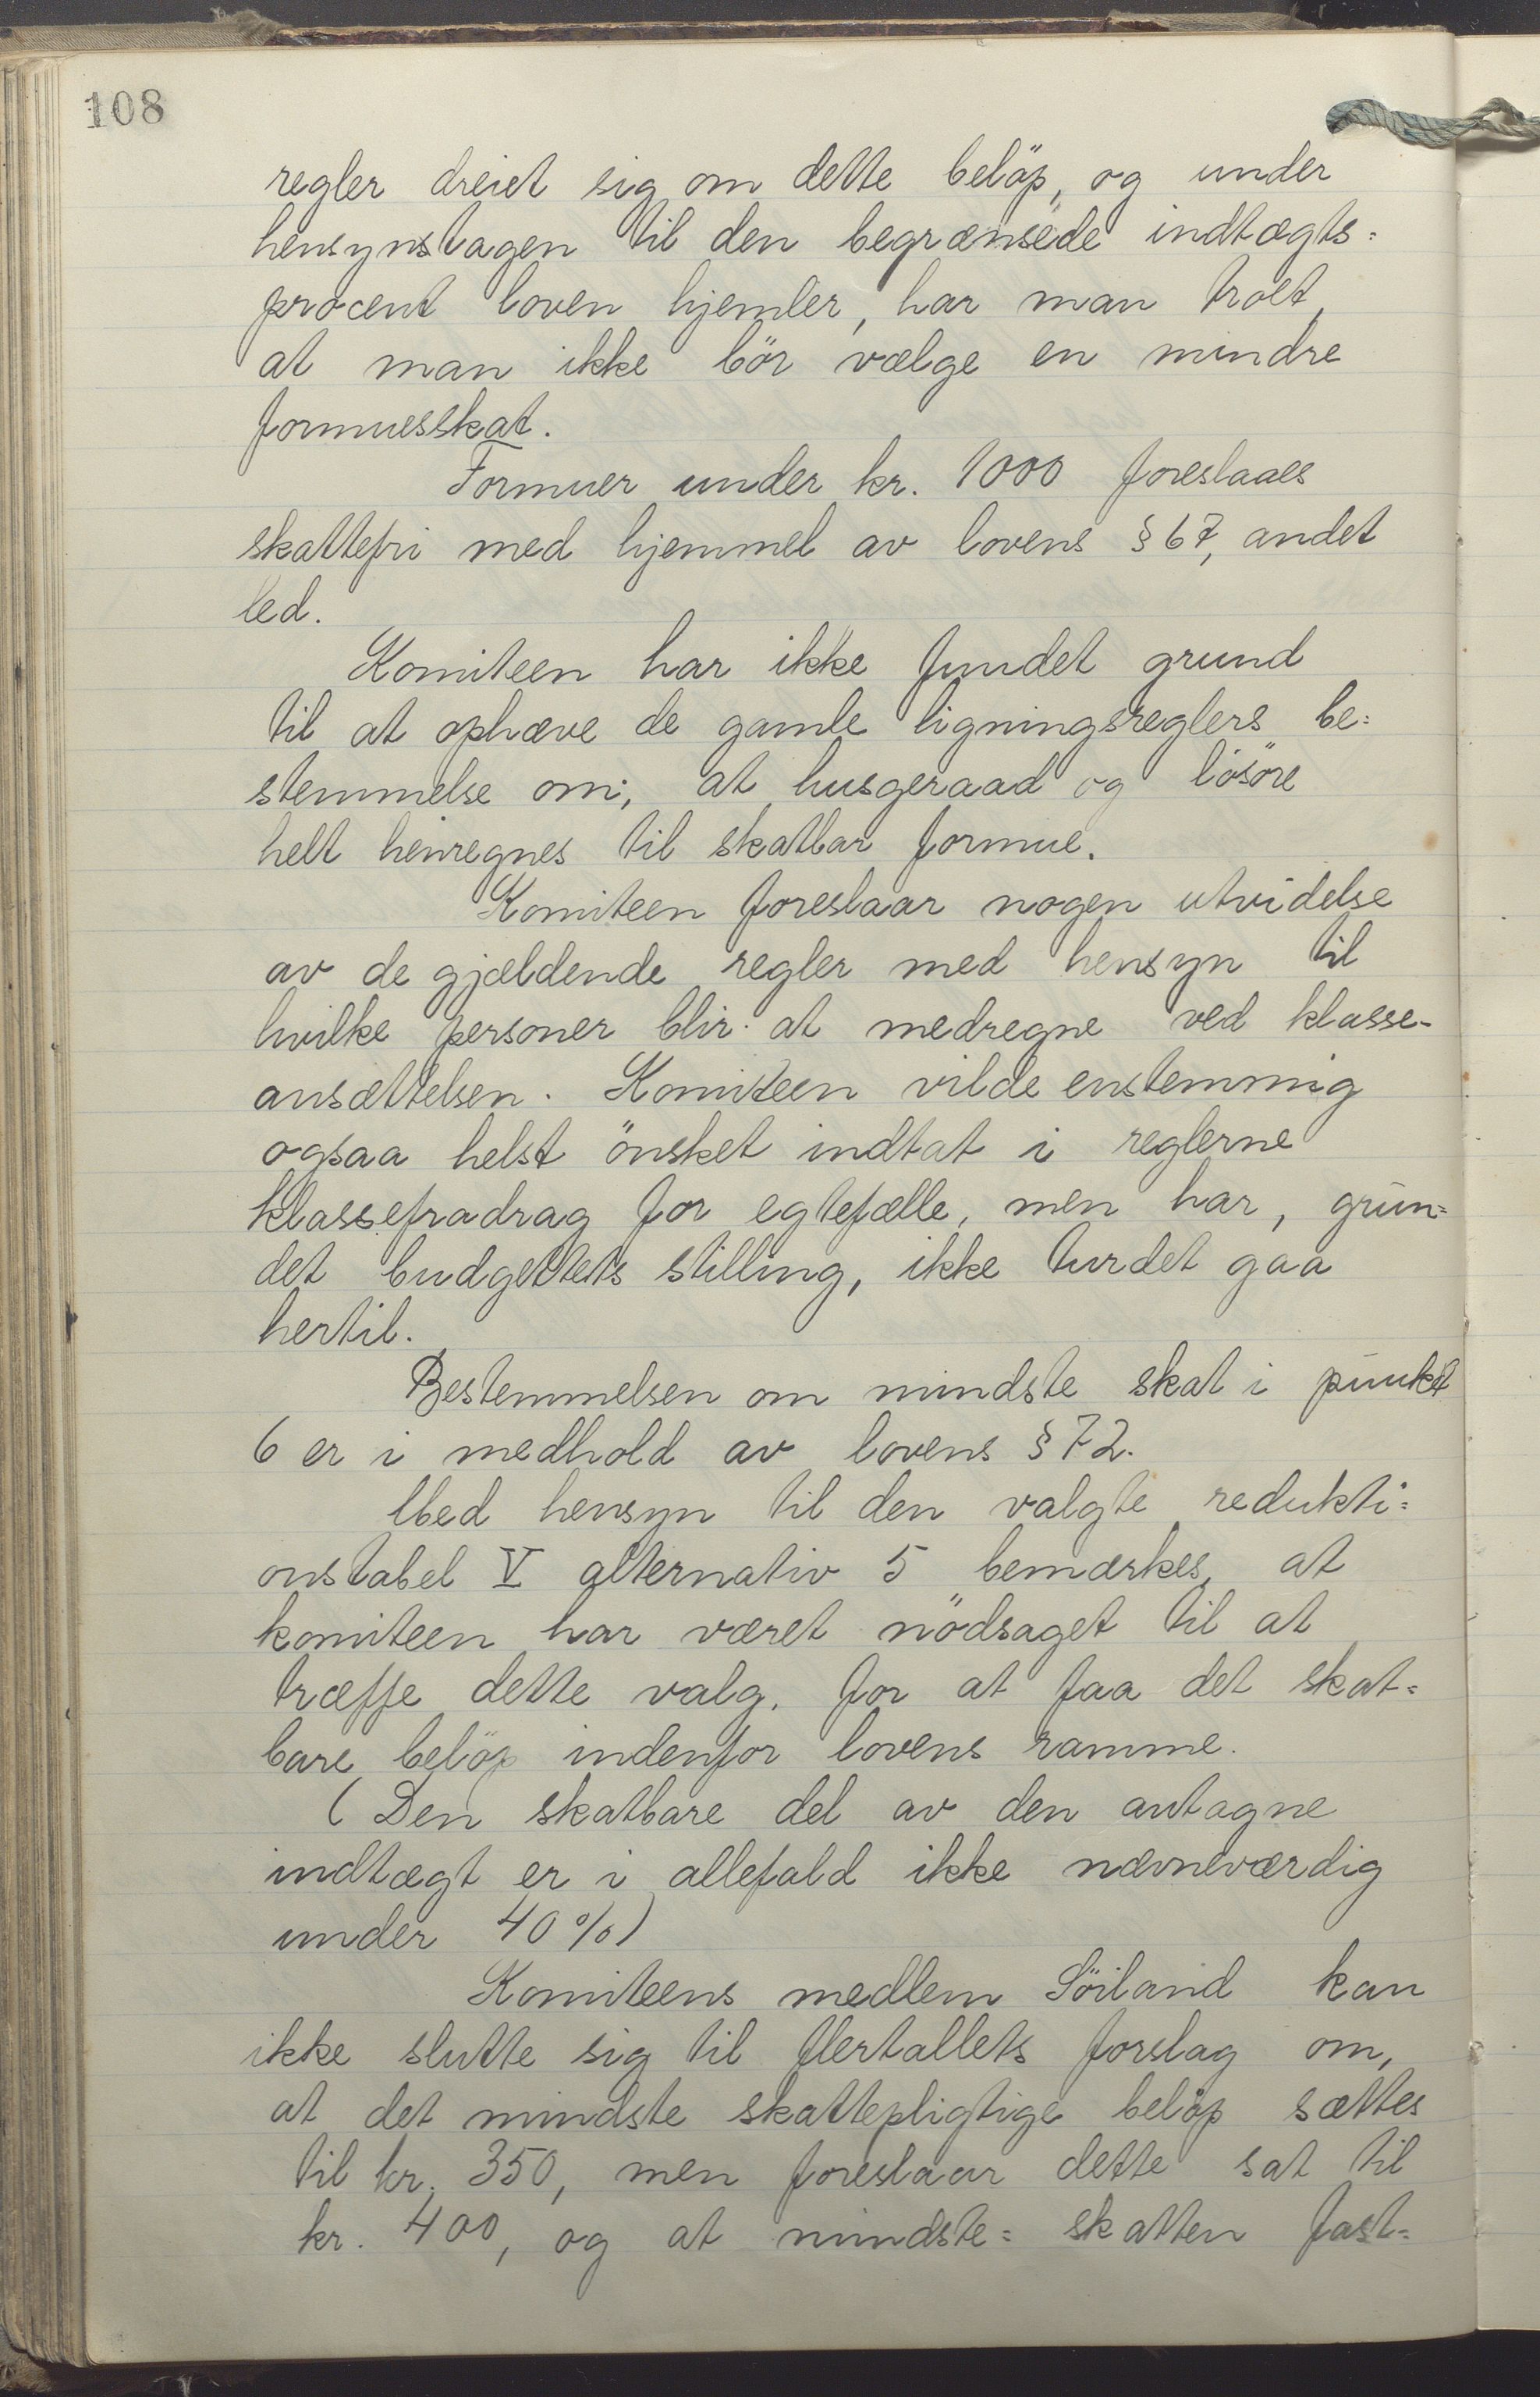 108
regler dreiet sig om dette beløp, og under
hensynstagen til den begrænsede indtægts=
procent loven hjemler, har man troet,
at man ikke bör vælge en mindre
formuesskat.
Formuer under kr. 1000 foreslaaes
skattefri med hjemmel av lovens § 67, andet
led.
Komiteen har ikke fundet grund
til at ophæve de gamle ligningsreglers be=
stemmelse om, at husgeraad og lösöre
helt henregnes til skatbar formue.
Komiteen foreslaar nogen utvidelse
av de gjældende regler med hensyn til
hvilke personer blir at medregne ved klasse-
ansættelsen. Komiteen vilde enstemmig
ogsaa helst önsket indtat i reglerne
klassefradrag for egtefælle, men har, grun=
det budgettets stilling, ikke turdet gaa
hertil.
Bestemmelsen om mindste skat i punkt
6 er i medhold av lovens § 72.
Med hensyn til den valgte redukti=
onstabel V alternativ 5 bemærkes, at
komiteen har været nödsaget til at
træffe dette valg, for at faa det skat=
bare belöp indenfor lovens ramme.
(Den skatbare del av den antagne
indtægt er i allefald ikke nævneværdig
under 40%)
Komiteens medlem Söiland kan
ikke slutte sig til flertallets forslag om,
at det mindste skattepligtige belöp sættes
til kr. 350, men foreslaar dette sat til
kr. 400, og at mindste= skatten fast=